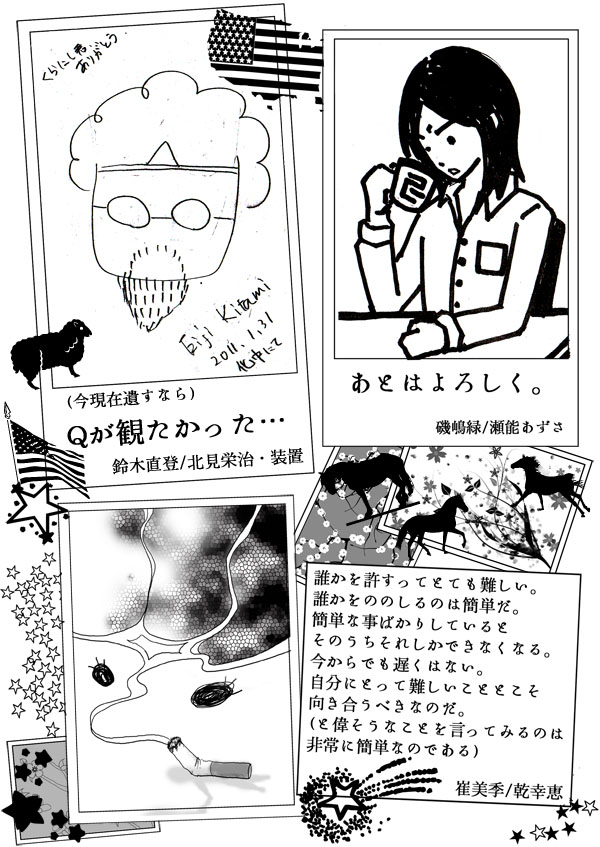 くらにし君
ありがとう
Eiji Kitami
2011.1.31
(今現在遺すなら)
Qが観たかった…
鈴木直登/北見栄治・装置
己
あとはよろしく。
磯嶋緑/瀬能あずさ
誰かを許すってとても難しい。
誰かをののしるのは簡単だ。
簡単な事ばかりしていると
そのうちそれしかできなくなる。
今からでも遅くはない。
自分にとって難しいこととこそ
向き合うべきなのだ。
(と偉そうなことを言ってみるのは
非常に簡単なのである)
崔美季/乾幸恵